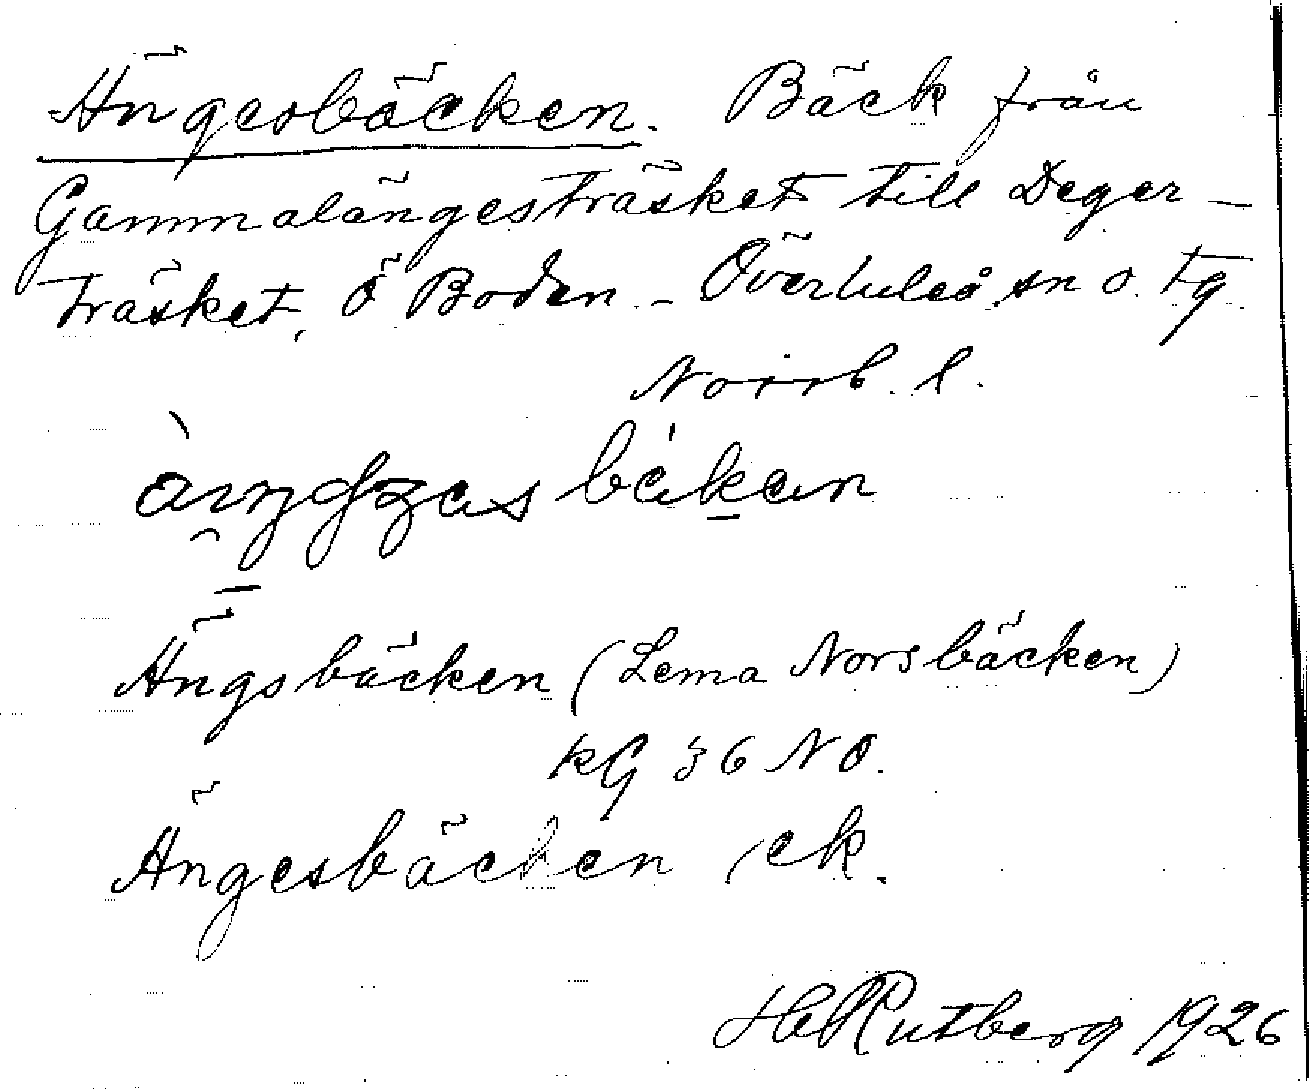 Ängesbäcken. Bäck från
Gammalängesträsket till Deger-
träsket, Ö Boden - Överluleå sn o. tg
Norrb. l.
bäkan
Ängsbäcken (Lema Norsbäcken)
kG 36 NO.
Ängesbäcken, ek.
H Rutberg 1926